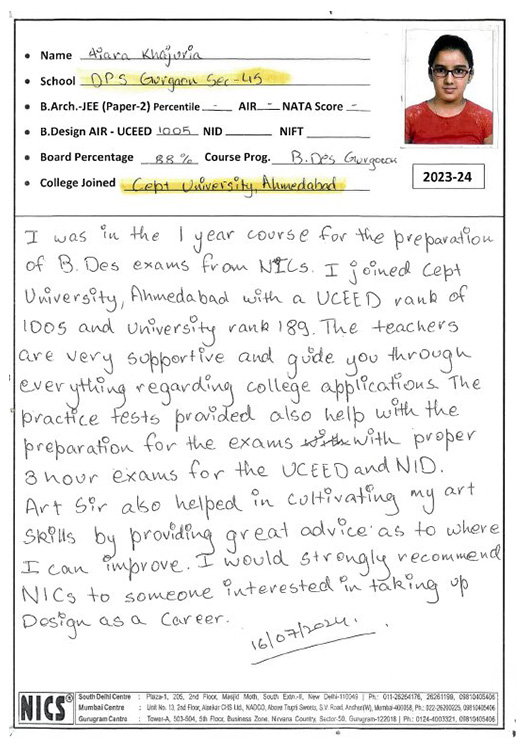 • Name Aiara Khajuria
• School DPS Gurgaon Sec-45
• B.Arch.-JEE (Paper-2) Percentile - AIR - NATA Score -
• B.Design AIR - UCEED 1005 NID NIFT
• Board Percentage 88% Course Prog. B.Des Gurgaon
• College Joined Cept University, Ahmedabad
2023-24
I was in the 1 year course for the preparation
of B.Des exams from NICs. I joined Cept
University, Ahmedabad with a UCEED rank of
1005 and University rank 189. The teachers
are very supportive and guide you through
everything regarding college applications. The
practice tests provided also help with the
preparation for the exams with proper
3 hour exams for the UCEED and NID.
Art Sir also helped in cultivating my art
skills by providing great advice as to where
I can improve. I would strongly recommend
NICs to someone interested in taking up
Design as a career.
16/07/2024.
NICS®
South Delhi Centre : Plaza-1, 205, 2nd Floor, Masjid Moth, South Extn.-II, New Delhi-110049 | Ph.: 011-26264176, 26261199, 09810405406
Mumbai Centre : Unit No. 13, 2nd Floor, Alankar CHS Ltd., NADCO, Above Trupti Sweets, S.V. Road, Andheri(W), Mumbai-400058, Ph.: 022-26200225, 09810405406
Gurugram Centre : Tower-A, 503-504, 5th Floor, Business Zone, Nirvana Country, Sector-50, Gurugram-122018 | Ph.: 0124-4003321, 09810405406